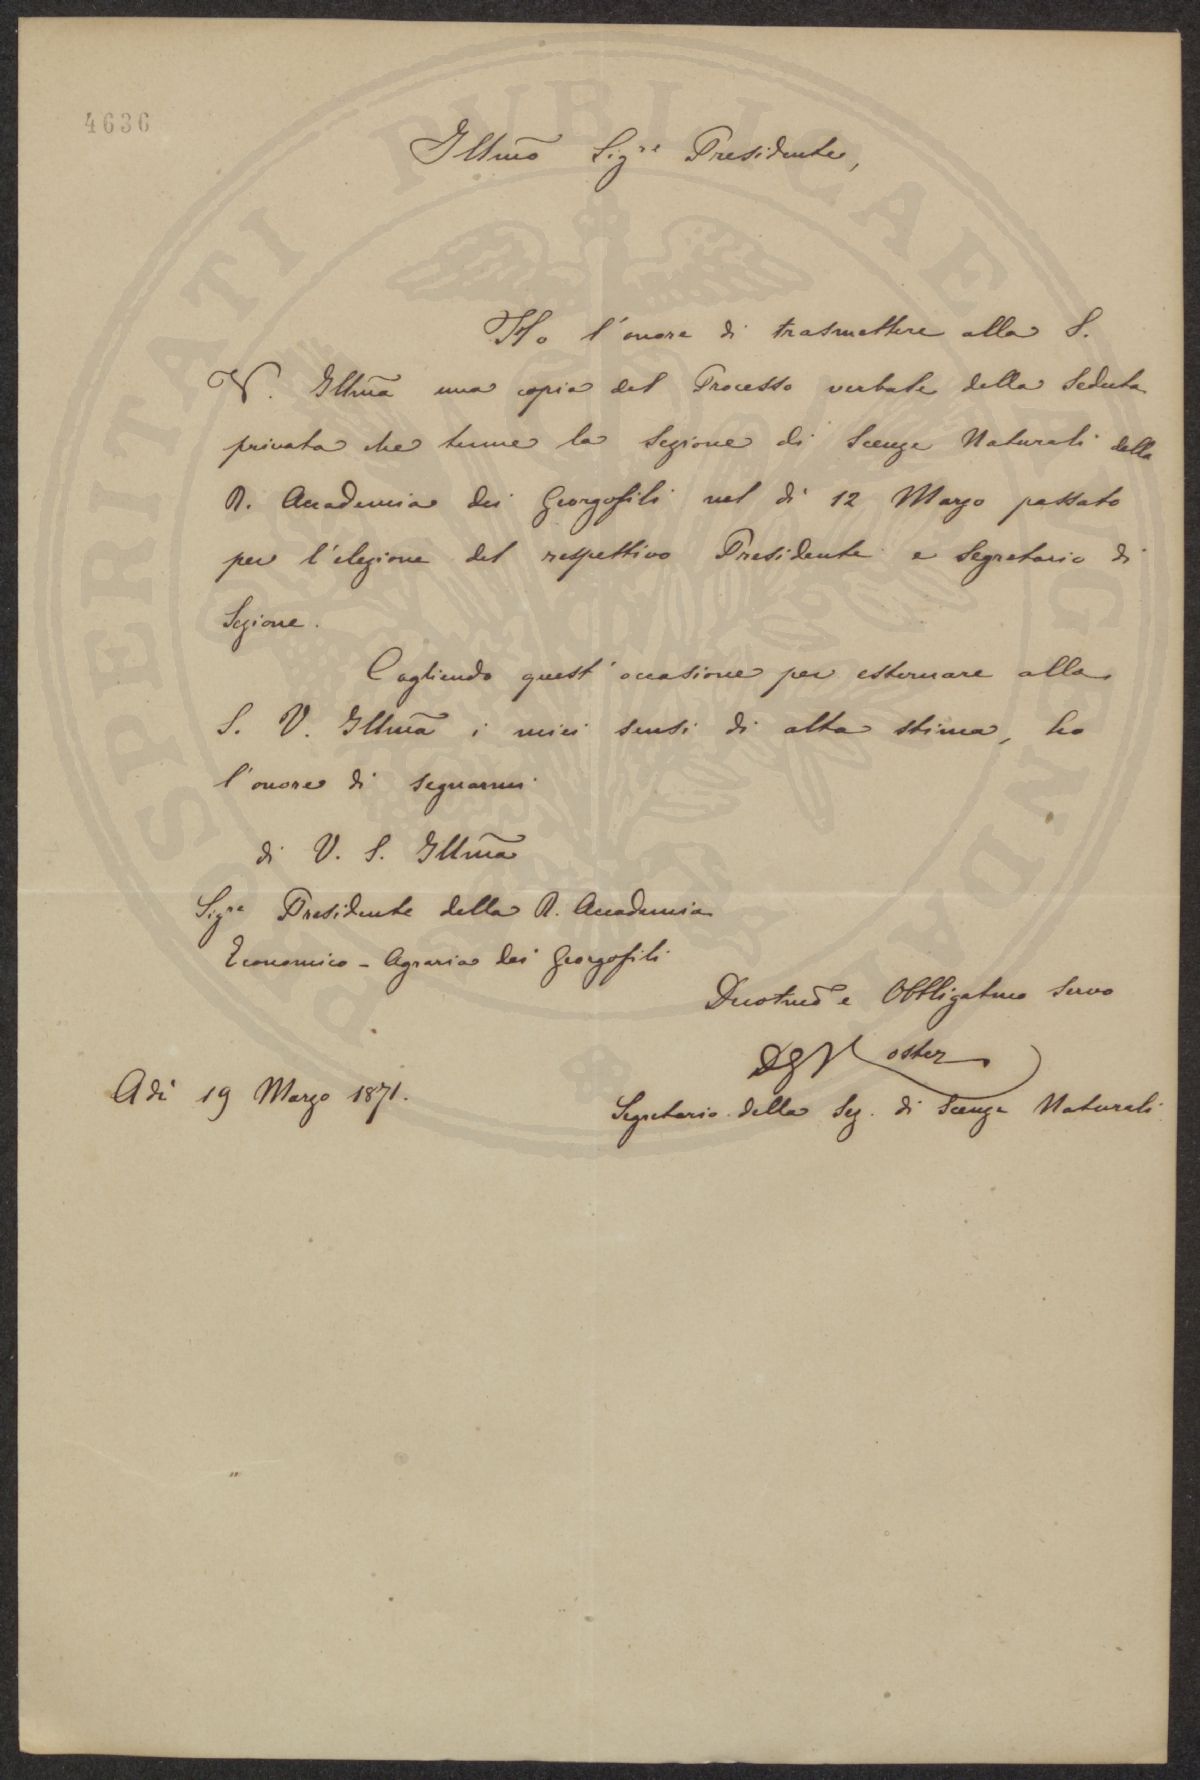 4636
Illmo Sigre Presidente,
Ho l'onore di trasmettere alla S.
V. Illma una copia del Processo verbale della Seduta
privata che tenne la Sezione di Scenze Naturali della
R. Accademia dei Georgofili nel dì 12 Marzo passato
per l'elezione del respettivo Presidente e Segretario di
Sezione.
Cogliendo quest'occasione per esternare alla
S. V. Illma i miei sensi di alta stima, ho
l'onore di segnarmi
di V. S. Illma
Sigre Presidente della R. Accademia
Economico - Agraria dei Georgofili
Devotmo e Obbligatmo servo
Koster
Adì 19 Marzo 1871.
Segretario della Sez. di Scenze Naturali
PROSPERITATI PUBLICAE AUGENDAE